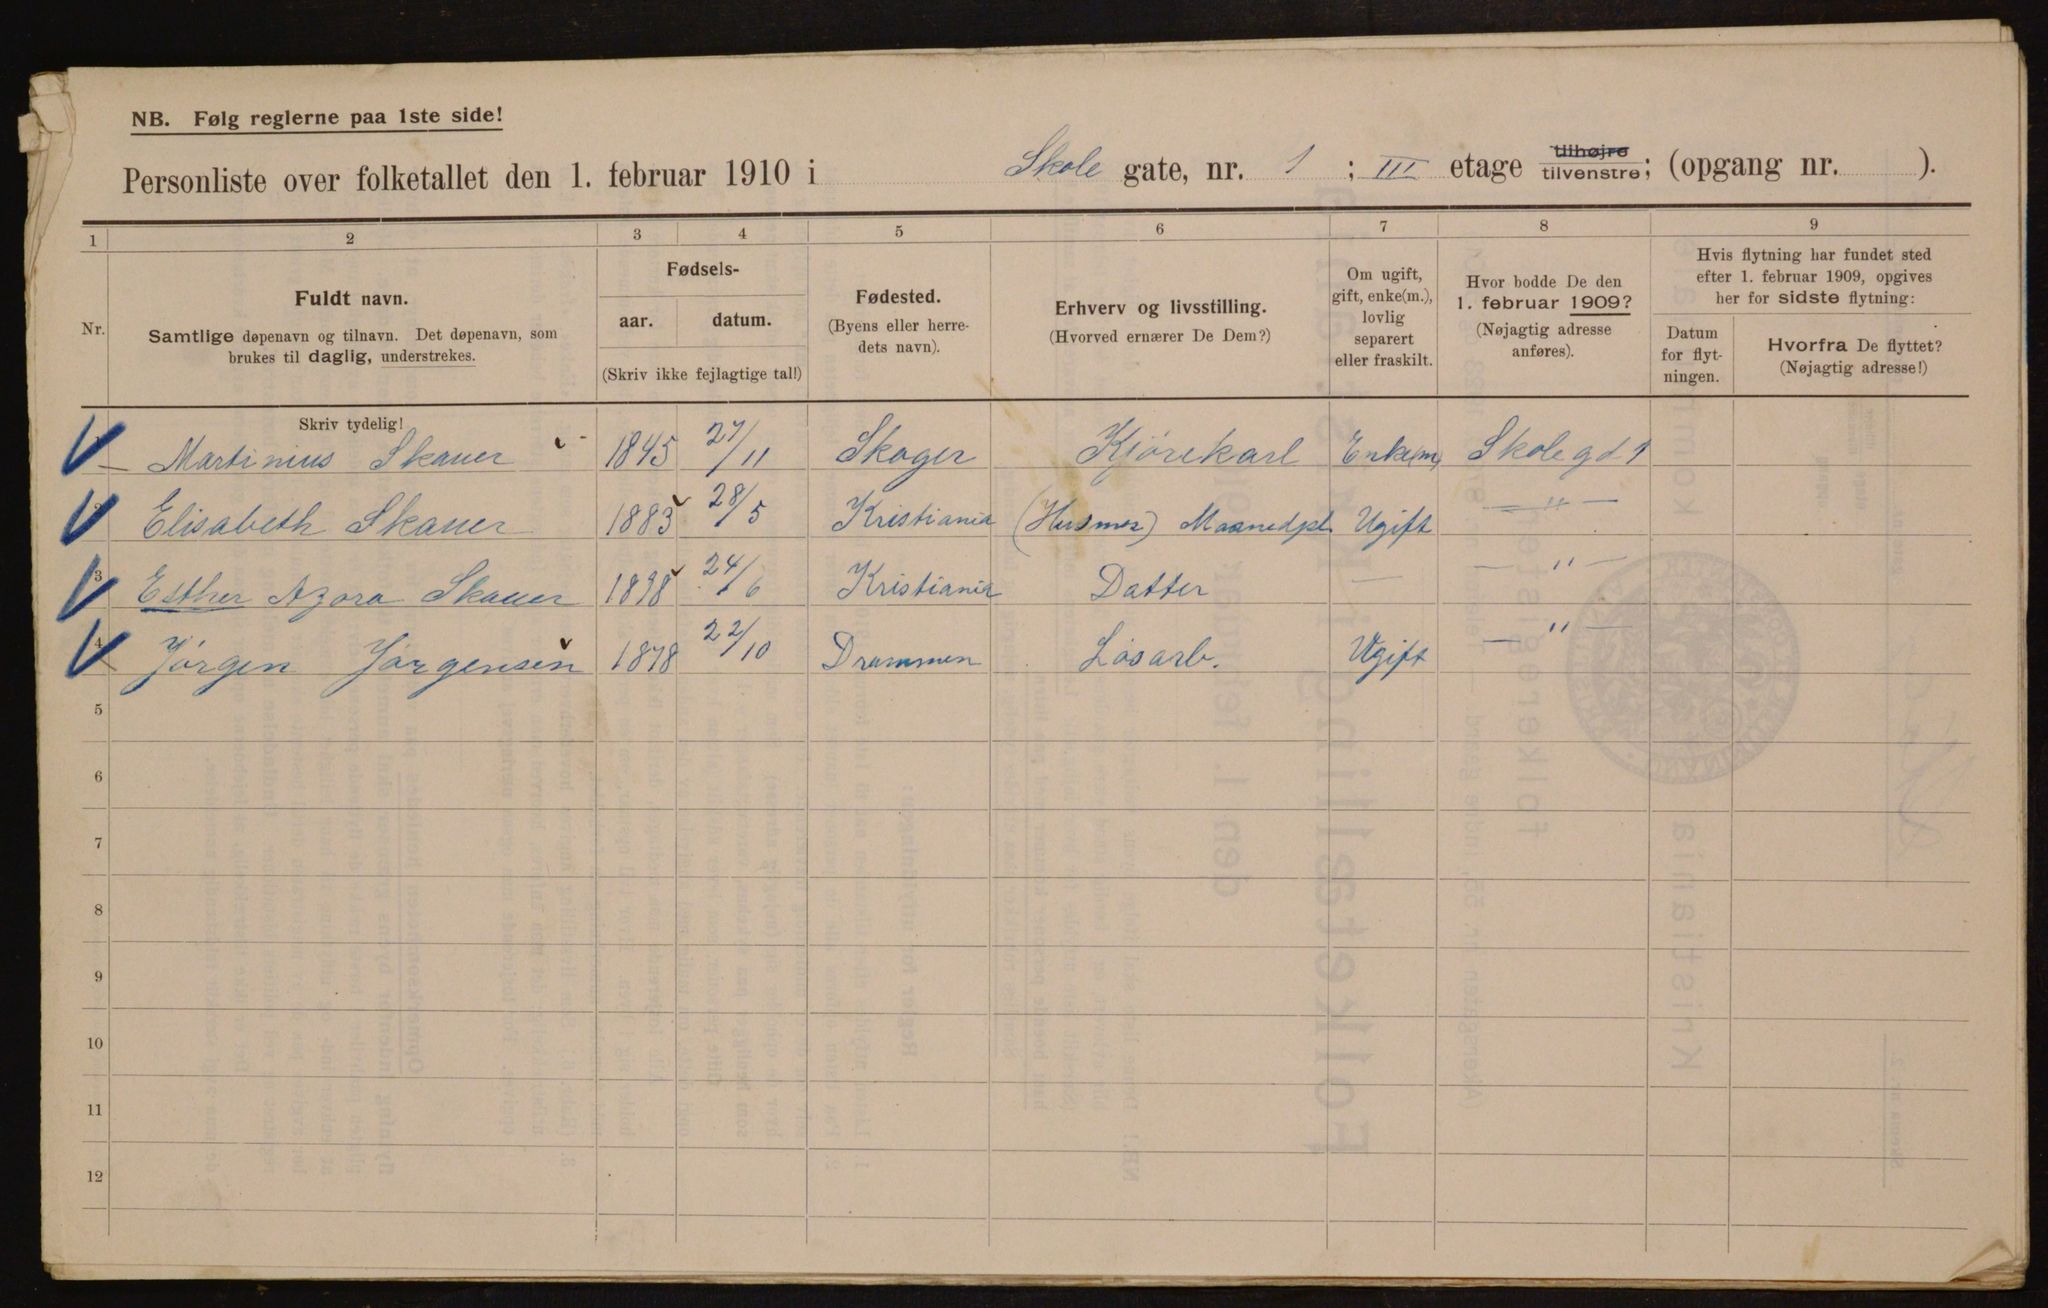 NB. Følg reglerne paa 1ste side!
Personliste over folketallet den 1. februar 1910 i Skole gate, nr. 1; III etage tilhøjre tilvenstre; (opgang nr. ).
1 2 3 4 5 6 7 8 9
Nr.
Fuldt navn.
Samtlige døpenavn og tilnavn. Det døpenavn, som
brukes til daglig, understrekes.
Fødsels-
aar. datum.
(Skriv ikke fejlagtige tal!)
Fødested.
(Byens eller herre-
dets navn).
Erhverv og livsstilling.
(Hvorved ernærer De Dem?)
Om ugift,
gift, enke(m.),
lovlig
separert
eller fraskilt.
Hvor bodde De den
1. februar 1909?
(Nøjagtig adresse
anføres).
Hvis flytning har fundet sted
efter 1. februar 1909, opgives
her for sidste flytning:
Datum
for flyt-
ningen.
Hvorfra De flyttet?
(Nøjagtig adresse!)
Skriv tydelig!
1 Martinius Skauer 1845 27/11 Skoger Kjørekarl Enke(m) Skolegd 1
2 Elisabeth Skauer 1883 28/5 Kristiania (Husmor) Maanedspl. Ugift — " —
3 Esther Azora Skauer 1898 24/6 Kristiania Datter — — " —
4 Jørgen Jørgensen 1878 22/10 Drammen Løsarb. Ugift — " —
5
6
7
8
9
10
11
12